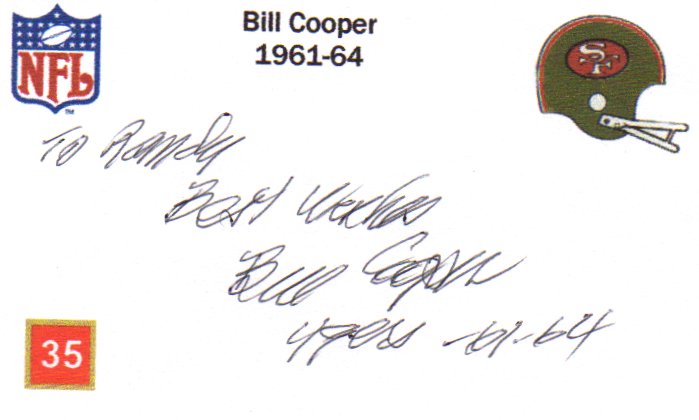 Bill Cooper
1961-64
NFL
TM
SF
To Randy
Best Wishes
Bill Cooper
49ers -61-64
35